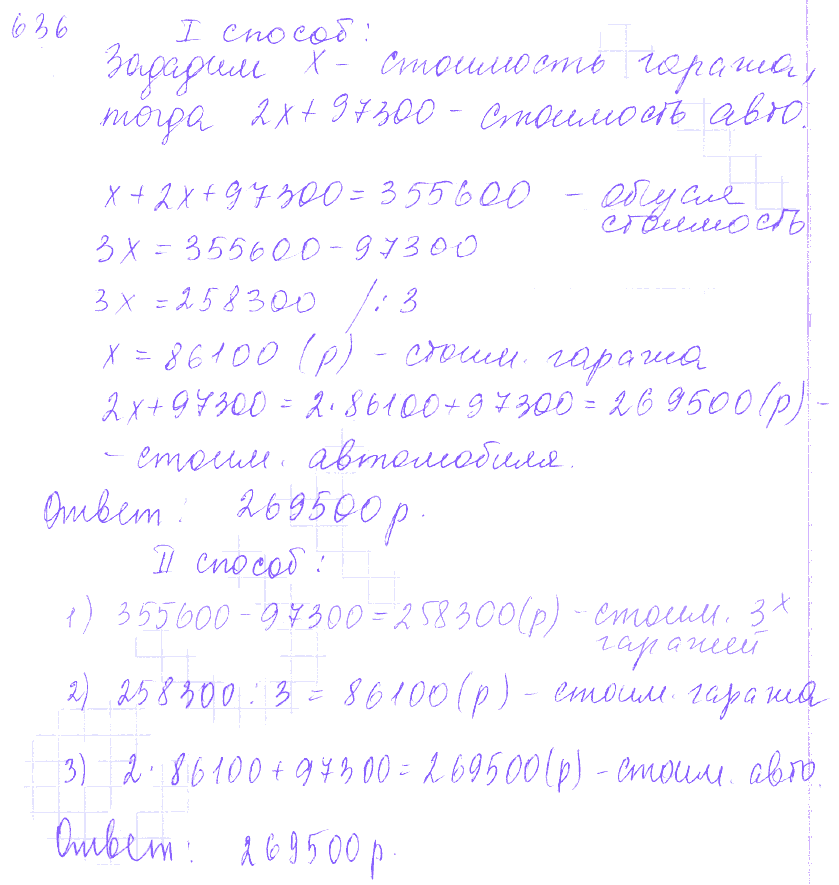 636
I способ:
Зададим x - стоимость гаража,
тогда 2x+97300 - стоимость авто.
x+2x+97300=355600 - общая
стоимость
3x=355600-97300
3x=258300 /:3
x=86100 (р) - стоим. гаража
2x+97300=2·86100+97300=269500(р) -
- стоим. автомобиля.
Ответ: 269500р.
II способ:
1) 355600-97300=258300(р) - стоим. 3х
гаражей
2) 258300:3=86100(р) - стоим. гаража
3) 2·86100+97300=269500(р) - стоим. авто.
Ответ: 269500р.